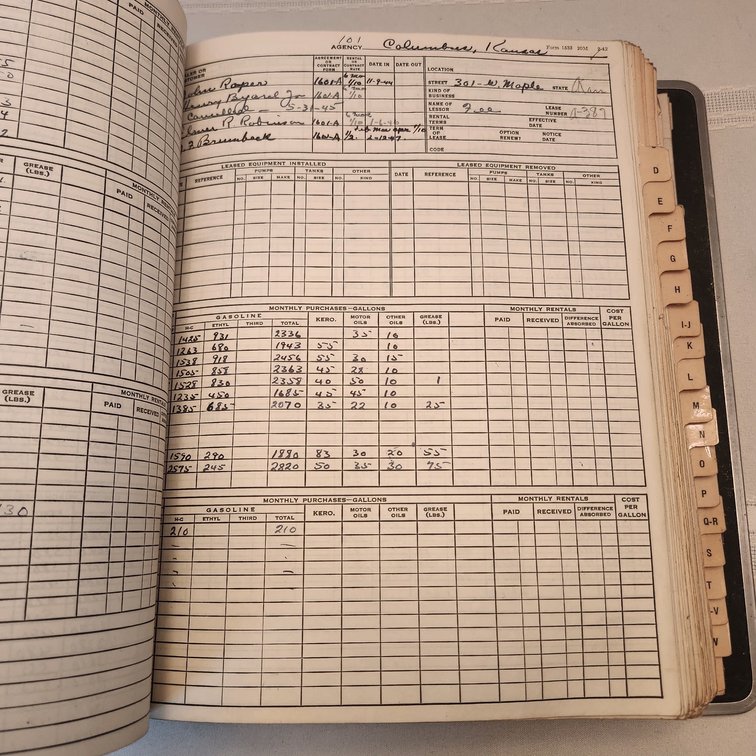 101
AGENCY Columbus, Kansas Form 1633 2-42
AGREEMENT OR CONTRACT FORM RENTAL OR CONTRACT RATE DATE IN DATE OUT LOCATION
Roper 1601-A 1/10 11-9-44 STREET 301-W. Maple STATE Kan
1601-A 1/10 KIND OF BUSINESS
5-31-45 NAME OF LESSOR LEASE NUMBER
R. Robinson 1601-A 1/10 1-6-46 RENTAL TERMS EFFECTIVE DATE
Brumback 1601-A 1/2 2-12-47 TERM OF LEASE OPTION RENEW? NOTICE DATE
CODE
LEASED EQUIPMENT INSTALLED LEASED EQUIPMENT REMOVED
REFERENCE PUMPS TANKS OTHER DATE REFERENCE PUMPS TANKS OTHER
NO. SIZE MAKE NO. SIZE NO. KIND NO. SIZE MAKE NO. SIZE NO. KIND
MONTHLY PURCHASES—GALLONS MONTHLY RENTALS
GASOLINE KERO. MOTOR OILS OTHER OILS GREASE (LBS.) PAID RECEIVED DIFFERENCE ABSORBED COST PER GALLON
H-C ETHYL THIRD TOTAL
1425 931 2336 35 10
1263 680 1943 55 10
1538 918 2456 55 30 15
1505 858 2363 45 28 10
1528 830 2358 40 50 10 1
1235 450 1685 45 45 10
1385 685 2070 35 22 10 25
1590 290 1880 83 30 20 55
2575 245 2820 50 35 30 75
MONTHLY PURCHASES—GALLONS MONTHLY RENTALS
GASOLINE KERO. MOTOR OILS OTHER OILS GREASE (LBS.) PAID RECEIVED DIFFERENCE ABSORBED COST PER GALLON
H-C ETHYL THIRD TOTAL
210 210
GREASE (LBS.)
MONTHLY
PAID RECEIVED
GREASE (LBS.)
MONTHLY
PAID RECEIVED
30
D
E
F
G
H
I-J
K
L
M
N
O
P
Q-R
S
T
-V
W